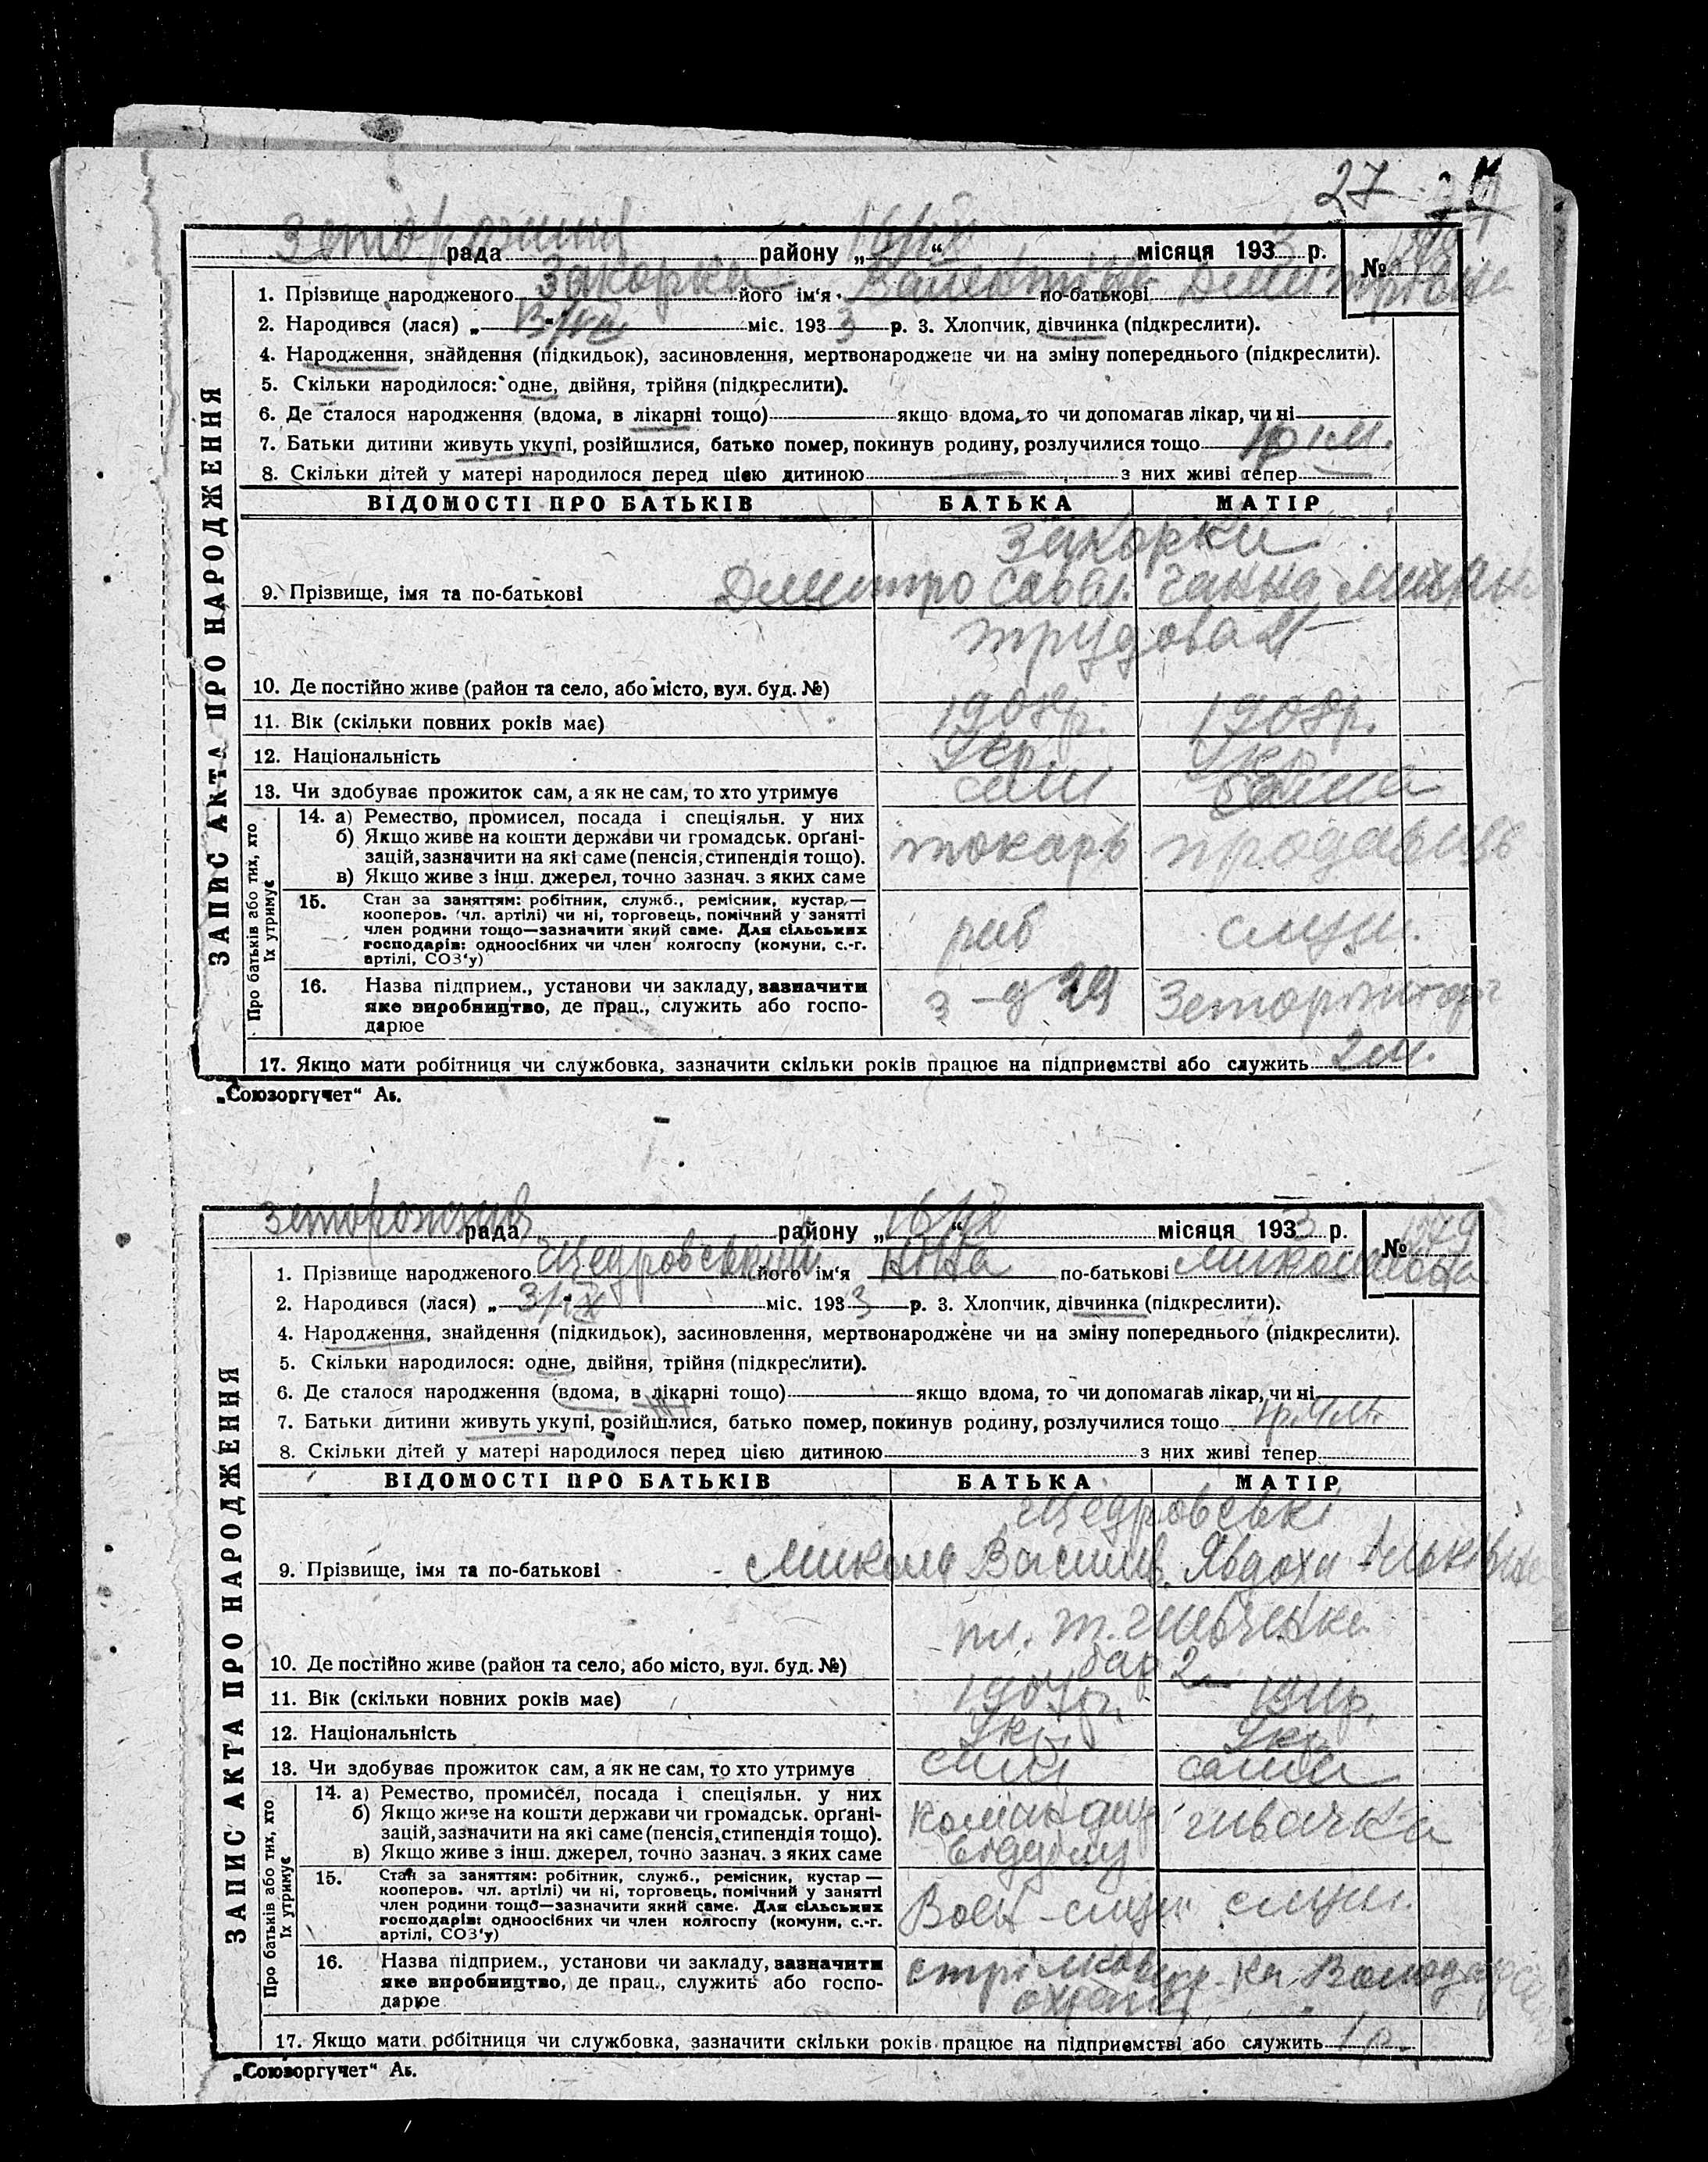 27
рада району „ “ місяця 193 р. №
1. Прізвище народженого його ім‘я Валентіна по-батькові Дмитрівна
2. Народився (лася) „ “ міс. 1933 р. 3. Хлопчик, дівчинка (підкреслити).
4. Народження, знайдення (підкидьок), засиновлення, мертвонароджене чи на зміну попереднього (підкреслити).
5. Скільки народилося: одне, двійня, трійня (підкреслити).
6. Де сталося народження (вдома, в лікарні тощо) якщо вдома, то чи допомагав лікар, чи ні
7. Батьки дитини живуть укупі, розійшлися, батько помер, покинув родину, розлучилися тощо
8. Скільки дітей у матері народилося перед цією дитиною з них живі тепер
ВІДОМОСТІ ПРО БАТЬКІВ БАТЬКА МАТІР
9. Прізвище, імя та по-батькові Дмитро Сав. Ганна
10. Де постійно живе (район та село, або місто, вул. буд. №) трудова
11. Вік (скільки повних років має) 1908р. 1908р.
12. Національність Укр Укр
13. Чи здобуває прожиток сам, а як не сам, то хто утримує сам сама
14. а) Ремество, промисел, посада і спеціяльн. у них
б) Якщо живе на кошти держави чи громадськ. орґані-
зацій, зазначити на які саме (пенсія, стипендія тощо).
в) Якщо живе з інш. джерел, точно зазнач. з яких саме
токарь продавець
15. Стан за заняттям: робітник, служб., ремісник, кустар,—
кооперов. чл. артілі) чи ні, торговець, помічний у занятті
член родини тощо—зазначити який саме. Для сільських
господарів: одноосібних чи член колгоспу (комуни, с.-г.
артілі, СОЗ‘у)
роб служ.
16. Назва підприєм., установи чи закладу, зазначити
яке виробництво, де прац., служить або госпо-
дарює
з-д 29
17. Якщо мати робітниця чи службовка, зазначити скільки років працює на підприємстві або служить 2 м.
ЗАПИС АКТА ПРО НАРОДЖЕННЯ
Про батьків або тих, хто
їх утримує
„Союзоргучет“ Аь.
рада району „ “ місяця 1933 р. №
1. Прізвище народженого Щедровський його ім‘я Ніна по-батькові Миколаівна
2. Народився (лася) „3/IX“ міс. 1933 р. 3. Хлопчик, дівчинка (підкреслити).
4. Народження, знайдення (підкидьок), засиновлення, мертвонароджене чи на зміну попереднього (підкреслити).
5. Скільки народилося: одне, двійня, трійня (підкреслити).
6. Де сталося народження (вдома, в лікарні тощо) якщо вдома, то чи допомагав лікар, чи ні
7. Батьки дитини живуть укупі, розійшлися, батько помер, покинув родину, розлучилися тощо
8. Скільки дітей у матері народилося перед цією дитиною з них живі тепер
ВІДОМОСТІ ПРО БАТЬКІВ БАТЬКА МАТІР
Щедровські
9. Прізвище, імя та по-батькові Микола Васильов. Явдоха
10. Де постійно живе (район та село, або місто, вул. буд. №) пл. т. Шевченка
бар 2
11. Вік (скільки повних років має) 1907р. 1911р.
12. Національність Укр. Укр.
13. Чи здобуває прожиток сам, а як не сам, то хто утримує сам сама
14. а) Ремество, промисел, посада і спеціяльн. у них
б) Якщо живе на кошти держави чи громадськ. орґані-
зацій, зазначити на які саме (пенсія, стипендія тощо).
в) Якщо живе з інш. джерел, точно зазнач. з яких саме
командир швачка
відділу
15. Стан за заняттям: робітник, служб., ремісник, кустар —
кооперов. чл. артілі) чи ні, торговець, помічний у занятті
член родини тощо—зазначити який саме. Для сільських
господарів: одноосібних чи член колгоспу (комуни, с.-г.
артілі, СОЗ‘у)
Воен-служ служ.
16. Назва підприєм., установи чи закладу, зазначити
яке виробництво, де прац., служить або госпо-
дарює
охрана
17. Якщо мати робітниця чи службовка, зазначити скільки років працює на підприємстві або служить 1 р.
ЗАПИС АКТА ПРО НАРОДЖЕННЯ
Про батьків або тих, хто
їх утримує
„Союзоргучет“ Аь.